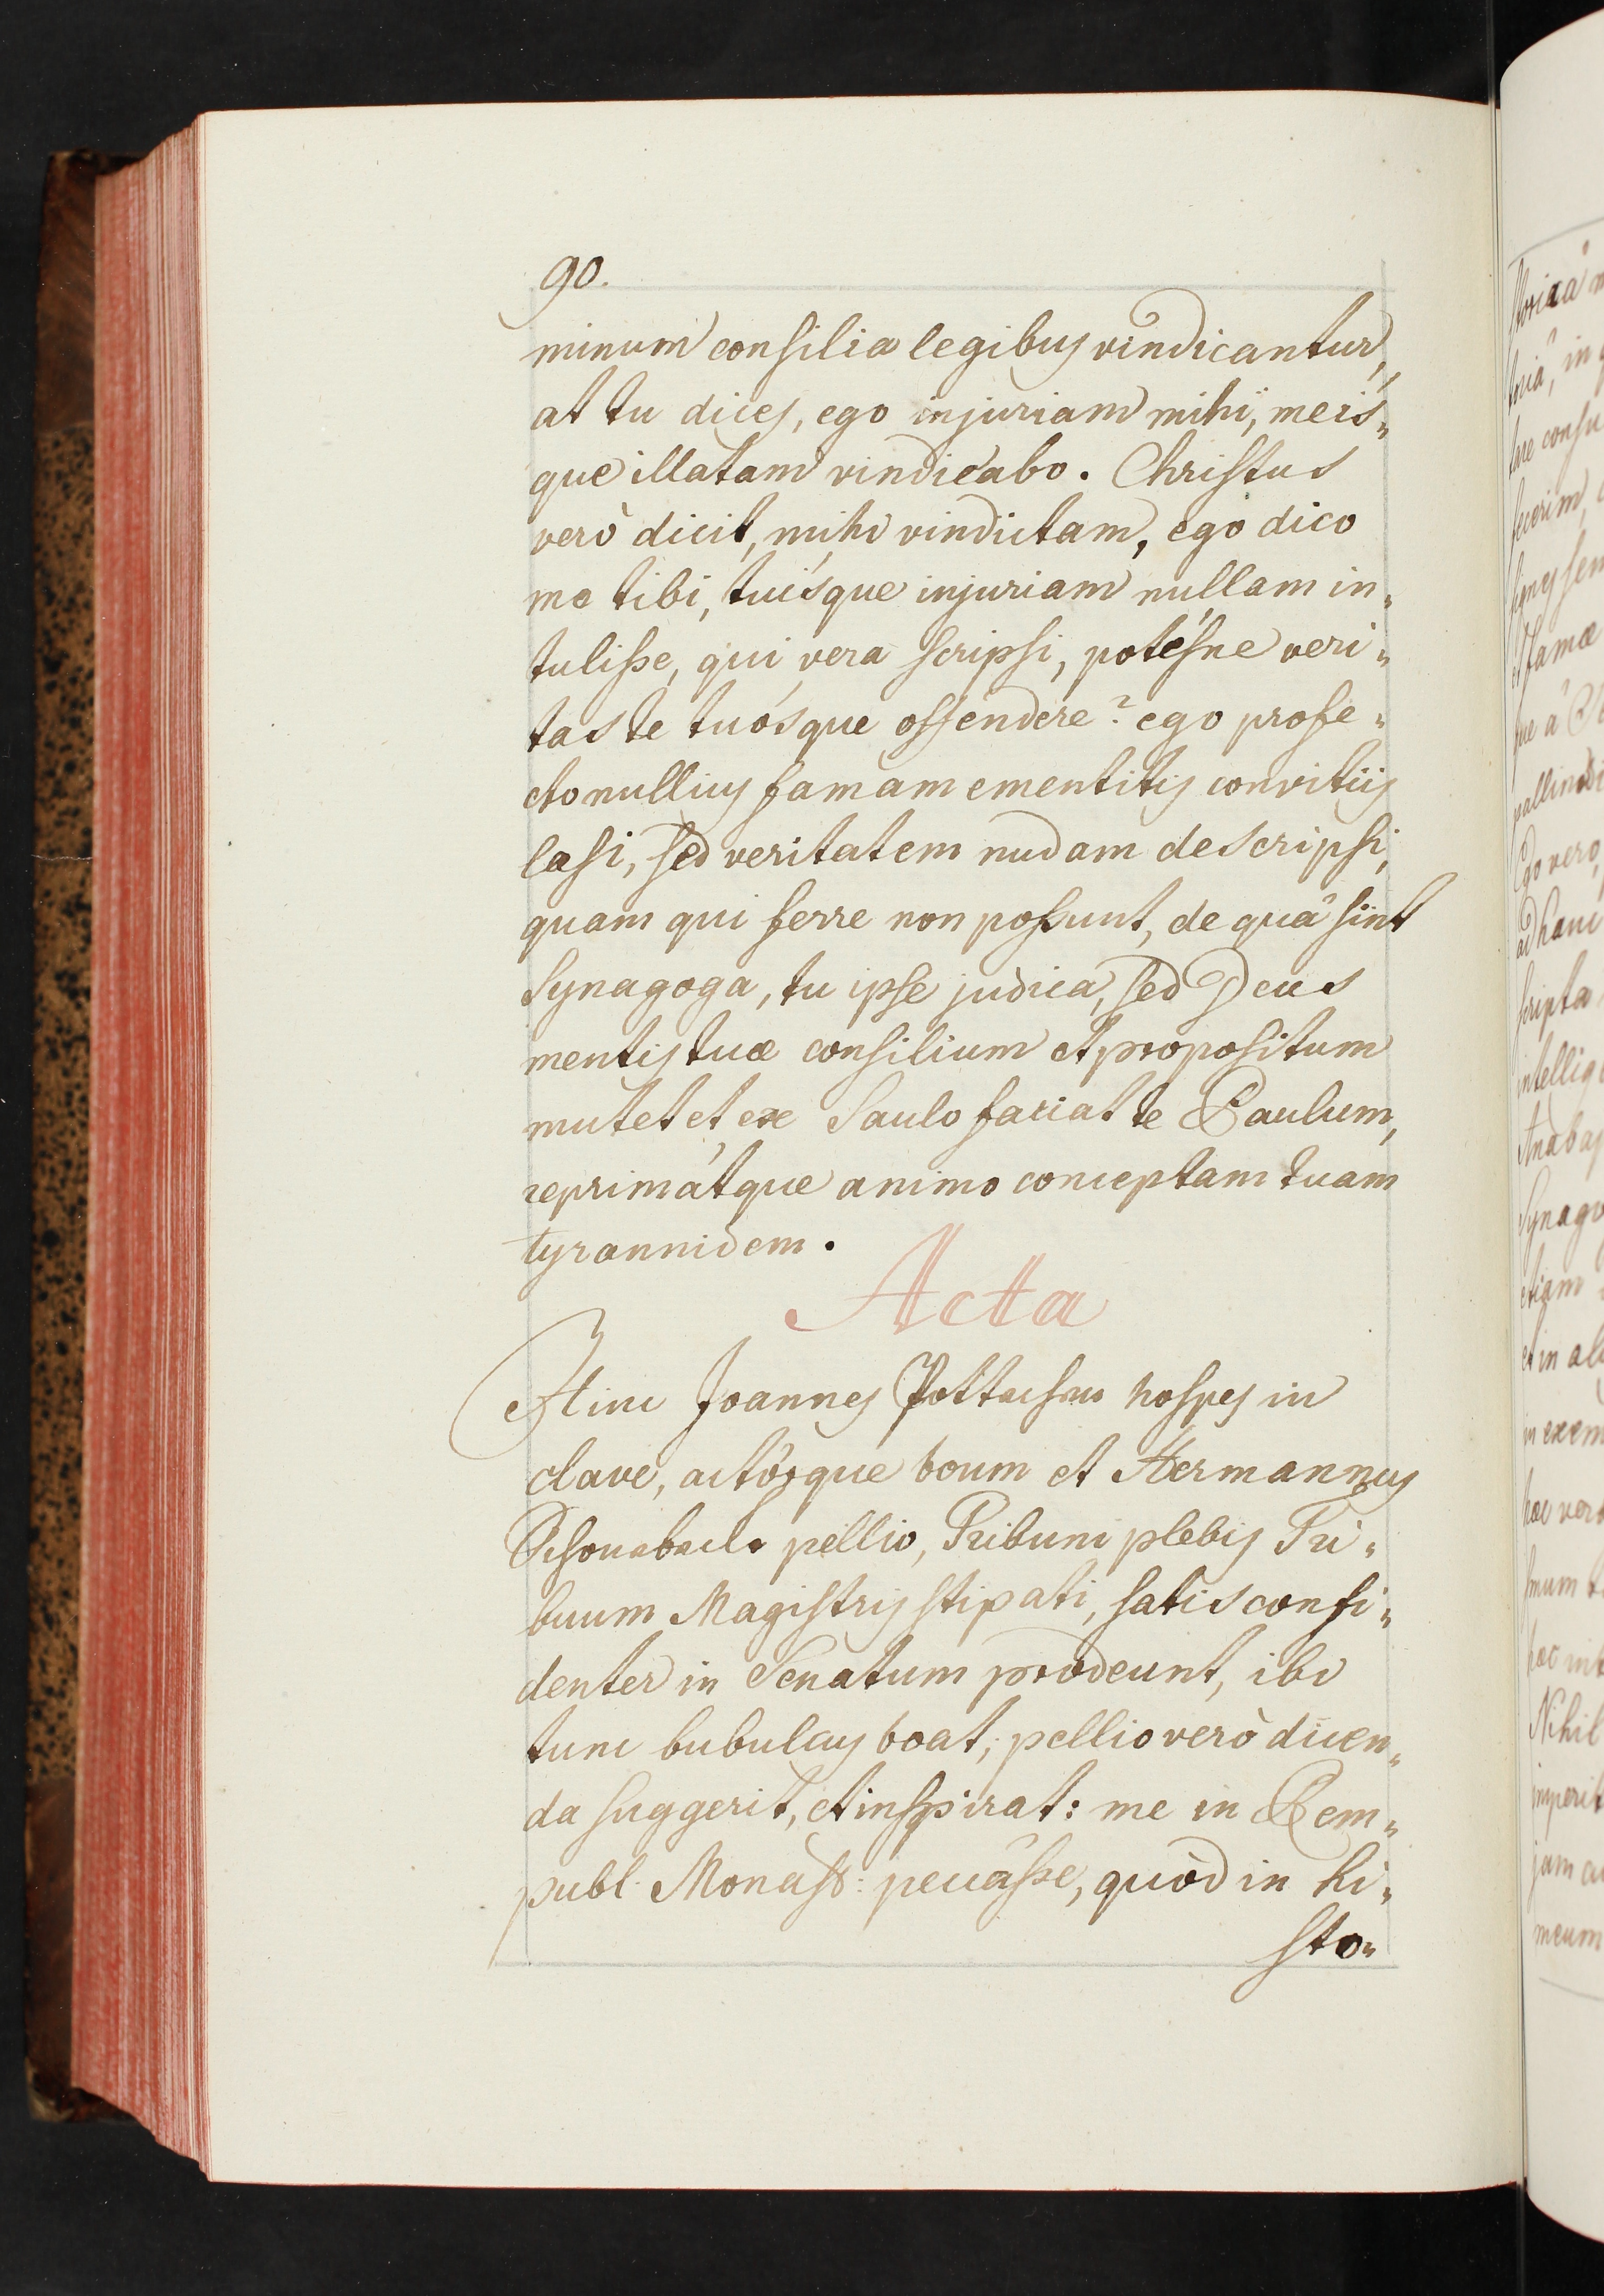 90.
minum consilia legibus vindicantur,
at tu dices, ego injuriam mihi, meis„
que illatam vindicabo. Christus
verò dicit, mihi vindictam, ego dico
me tibi, tuisque injuriam nullam in„
tulisse, qui vera scripsi, potésne veri„
tas te tuósque offendere? ego profe„
cto nullius famam ementitis convitiis
lasi, sed veritatem nudam descripsi,
quam qui ferre non possunt, de quâ sint
Synagoga, tu ipse judica, sed Deus
mentis tuæ consilium et propositum
mutet et ex Saulo faciat te Paulum,
reprimátque animo conceptam tuam
tyrannidem.
Acta
Hinc Joannes hospes in
clave, actórque boum et Hermannus
pellio, Tribuni plebis Tri„
buum Magistris stipati, satis confi„
denter in Senatum prodeunt, ibi
tunc bubulcus boat; pellio verò dicen„
da suggerit, et inspirat: me in Rem„
publ. Monast: peccâsse, quòd in hi„
sto„